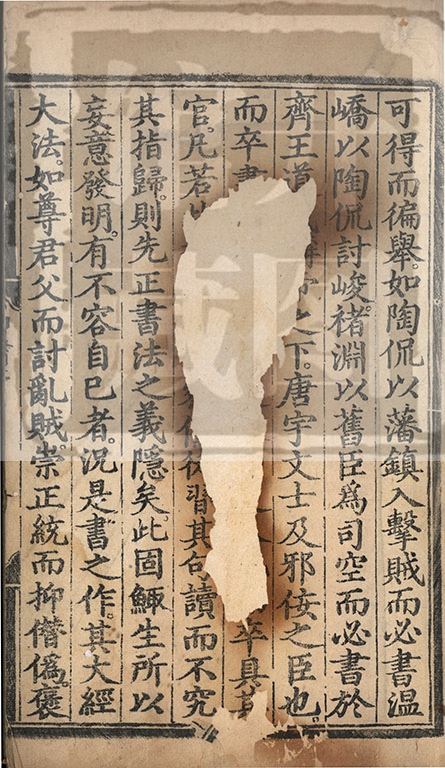 可得而徧舉。如陶侃以藩鎮入擊賊而必書溫
嶠以陶侃討峻。褚淵以舊臣爲司空而必書於
齊王道之下。唐宇文士及邪佞之臣也。
而卒書卒具其
官。凡若習其句讀而不究
其指歸。則先正書法之義隱矣。此固鯫生所以
妄意發明。有不容自已者。況是書之作。其大經
大法。如尊君父而討亂賊。崇正統而抑僭僞。褒